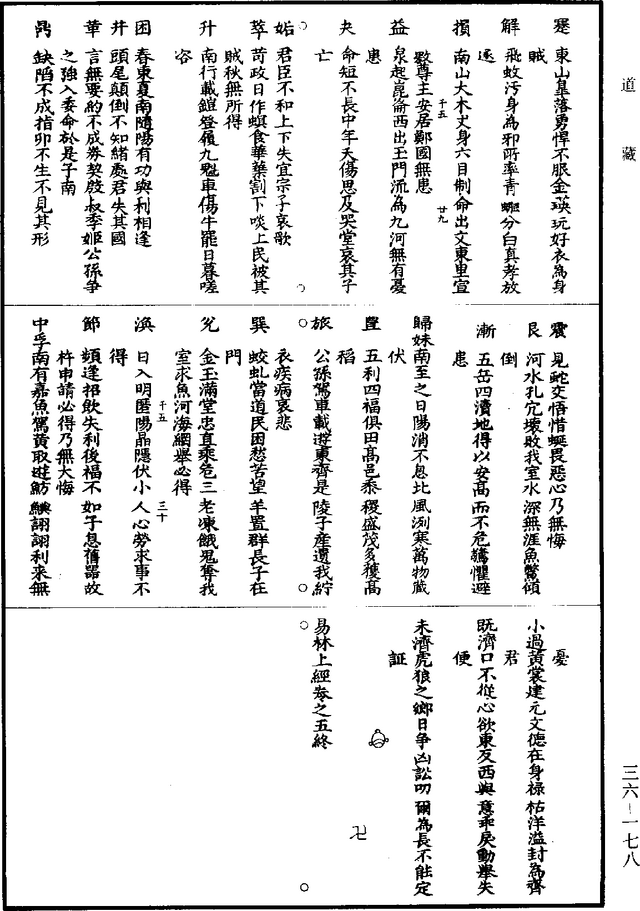 道藏
蹇 東山皐落勇悍不服金瑛玩好衣為身
賊
解 飛蚊污身為邪所牽青蠅分白真孝放
逐
損 南山大木文身六目制命出文東里宣
千五 廿九
數尊主安居鄭國無患
益 泉起崑崙西出玉門流為九河無有憂
患
夬 命短不長中年夭傷思及哭堂哀其子
亡
姤 君臣不和上下失宜宗子哀歌
萃 苛政日作螟食華葉割下啖上民被其
賊秋無所得
升 南行載鎧登履九魁車傷牛罷日暮嗟
咨
困 春東夏南隨陽有功與利相逢
井 頭尾顛倒不知緒處君失其國
革 言無要約不成券契殷叔季姬公孫爭
之強入委命於是子南
鼎 缺陷不成指卯不生不見其形
震 見蛇交悟惜蚖畏惡心乃無悔
艮 河水孔穴壞敗我室水深無涯魚鱉傾
倒
漸 五岳四瀆地得以安高而不危驚懼避
患
歸妹南至之日陽消不息北風冽寒萬物藏
伏
豐 五利四福俱田高邑黍稷盛茂多獲高
稻
旅 公孫駕車載遊東齊是陵子產遺我紵
衣疾病哀悲
巽 蛟虬當道民困愁苦望羊置群長子在
門
兌 金玉滿堂忠直乘危三老凍餓鬼奪我
室求魚河海網舉必得
渙 日入明匿陽晶隱伏小人心勞求事不
千五 三十
得
節 頻逢招飲失利後福不如子息舊器故
杵申請必得乃無大悔
中孚南有嘉魚駕黃取遊魴鱮詡詡利來無
憂
小過黃裳建元文德在身祿祜洋溢封為齊
君
既濟口不從心欲東反西與意乖戾動舉失
便
未濟虎狼之鄉日爭凶訟叨爾為長不能定
証
易林上經卷之五終
卍
三六-一七八